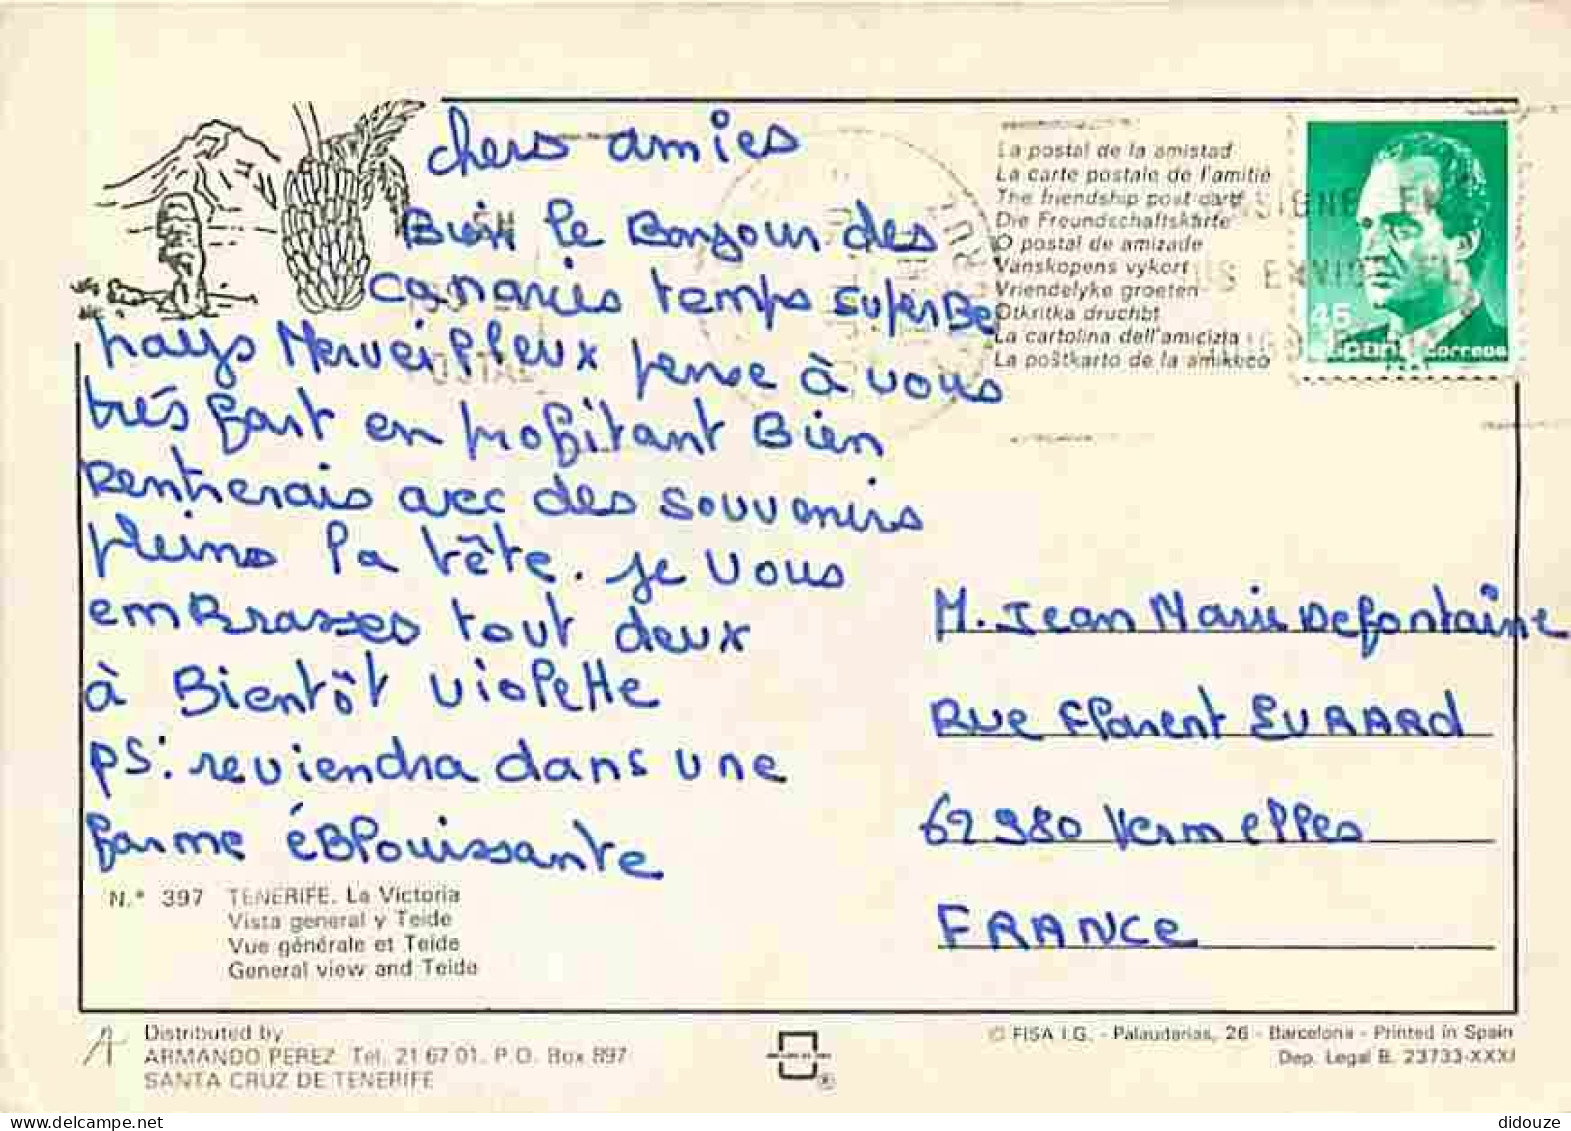 chers amies
Bien le Bonjour des
canaries temps superBe
pays Merveilleux pense à vous
très fort en profitant Bien
Rentrerais avec des souvenirs
pleins la tête. je vous
emBrasses tout deux
à Bientôt violette
PS: reviendra dans une
forme éBlouissante
La postal de la amistad
La carte postale de l'amitié
The friendship post card
Die Freundschaftskarte
O postal de amizade
Vanskopens vykort
Vriendelyke groeten
Otkritka druchbt
La cartolina dell'amicizia
La poŝtkarto de la amikeco
45
correos
M. Jean Marie Defontaine
Rue Florent EVRARd
62980 Vermelles
FRANCe
N.° 397 TENERIFE. La Victoria
Vista general y Teide
Vue générale et Teide
General view and Teide
Distributed by
ARMANDO PEREZ Tel. 21 67 01. P.O. Box 897
SANTA CRUZ DE TENERIFE
© FISA I.G. - Palaudarias, 26 - Barcelona - Printed in Spain
Dep. Legal B. 23733-XXXI
didouze